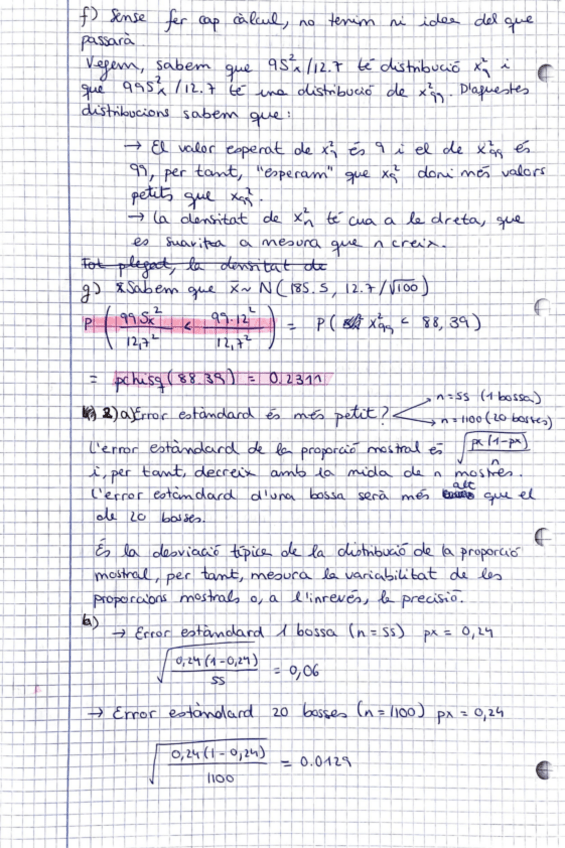 f) Sense fer cap càlcul, no tenim ni idea del que
passarà.
Vegem, sabem que 9S²x/12.7 té distribució x²9 i
que 99S²x/12.7 té una distribució de x²99. D'aquestes
distribucions sabem que:
→ El valor esperat de x²9 és 9 i el de x²99 és
99, per tant, "esperam" que x²9 doni més valors
petits que x²99.
→ La densitat de x²n té cua a la dreta, que
es suavitza a mesura que n creix.
Tot plegat, la densitat de
g) Sabem que X ~ N(185.5, 12.7/√100)
P(99S²x/12,7² < 99·12²/12,7²) = P(x²99 < 88,39)
= pchisq(88.39) = 0.2311
2)a) Error estàndard és més petit? n=55 (1 bossa)
n=1100 (20 bosses)
L'error estàndard de la proporció mostral és √(px(1-px)/n)
i, per tant, decreix amb la mida de n mostres.
L'error estàndard d'una bossa serà més alt que el
de 20 bosses.
És la desviació típica de la distribució de la proporció
mostral, per tant, mesura la variabilitat de les
proporcions mostrals o, a l'inrevés, la precisió.
b)
→ Error estàndard 1 bossa (n=55) px = 0,24
√(0,24(1-0,24)/55) = 0,06
→ Error estàndard 20 bosses (n=1100) px = 0,24
√(0,24(1-0,24)/1100) = 0.0129